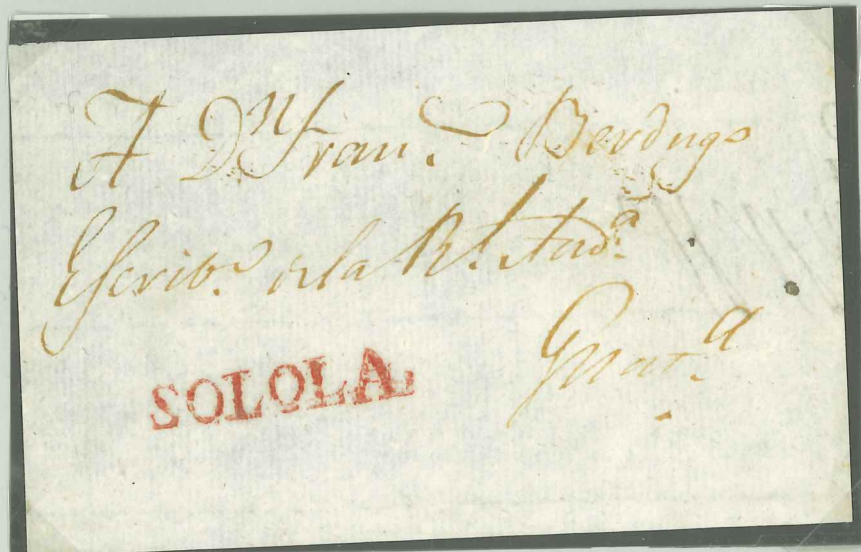 A Dn Fran.co Berdugo
Escrib.o de la Rl. Aud.a
Guat.a
SOLOLA.